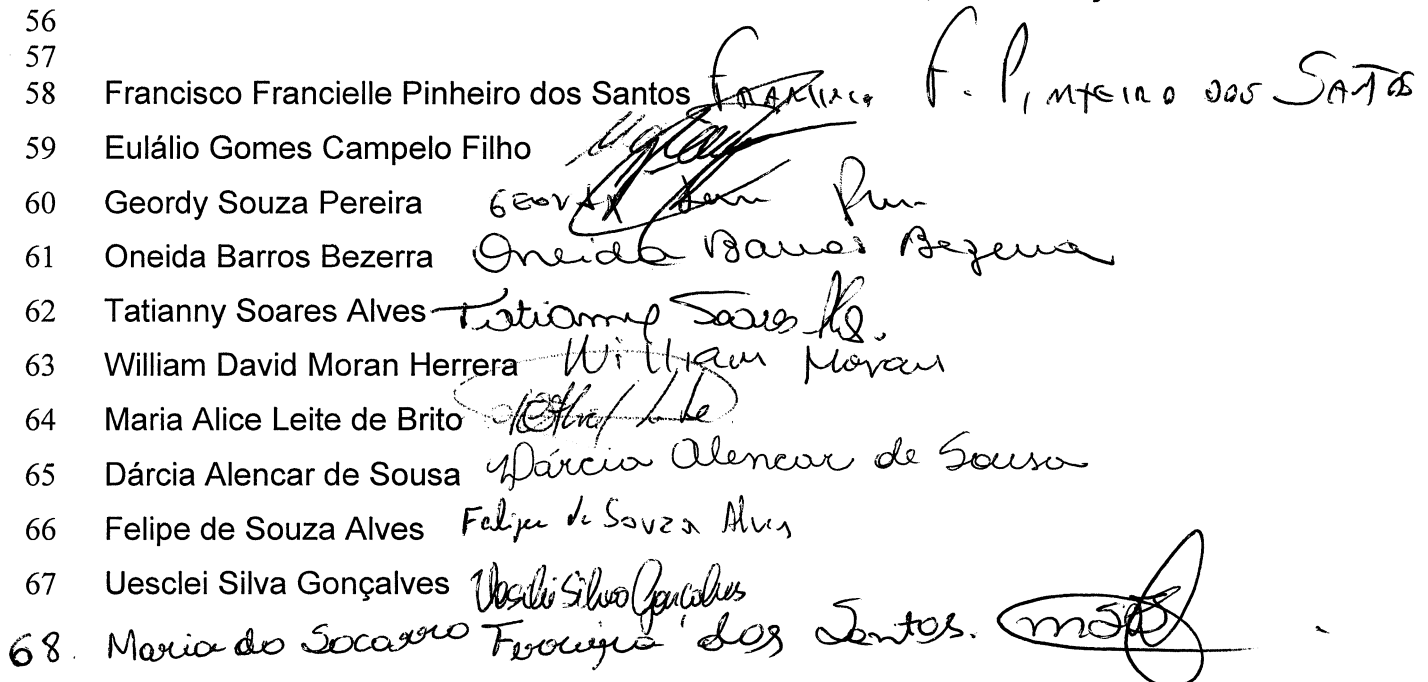 56
57
58 Francisco Francielle Pinheiro dos Santos Francisco F. Pinheiro dos Santos
59 Eulálio Gomes Campelo Filho
60 Geordy Souza Pereira
61 Oneida Barros Bezerra Oneida Barros Bezerra
62 Tatianny Soares Alves Tatianny Soares
63 William David Moran Herrera William Moran
64 Maria Alice Leite de Brito
65 Dárcia Alencar de Sousa Dárcia Alencar de Sousa
66 Felipe de Souza Alves Felipe de Souza Alves
67 Uesclei Silva Gonçalves Uesclei Silva Gonçalves
68. Maria do Socorro Ferreira dos Santos.